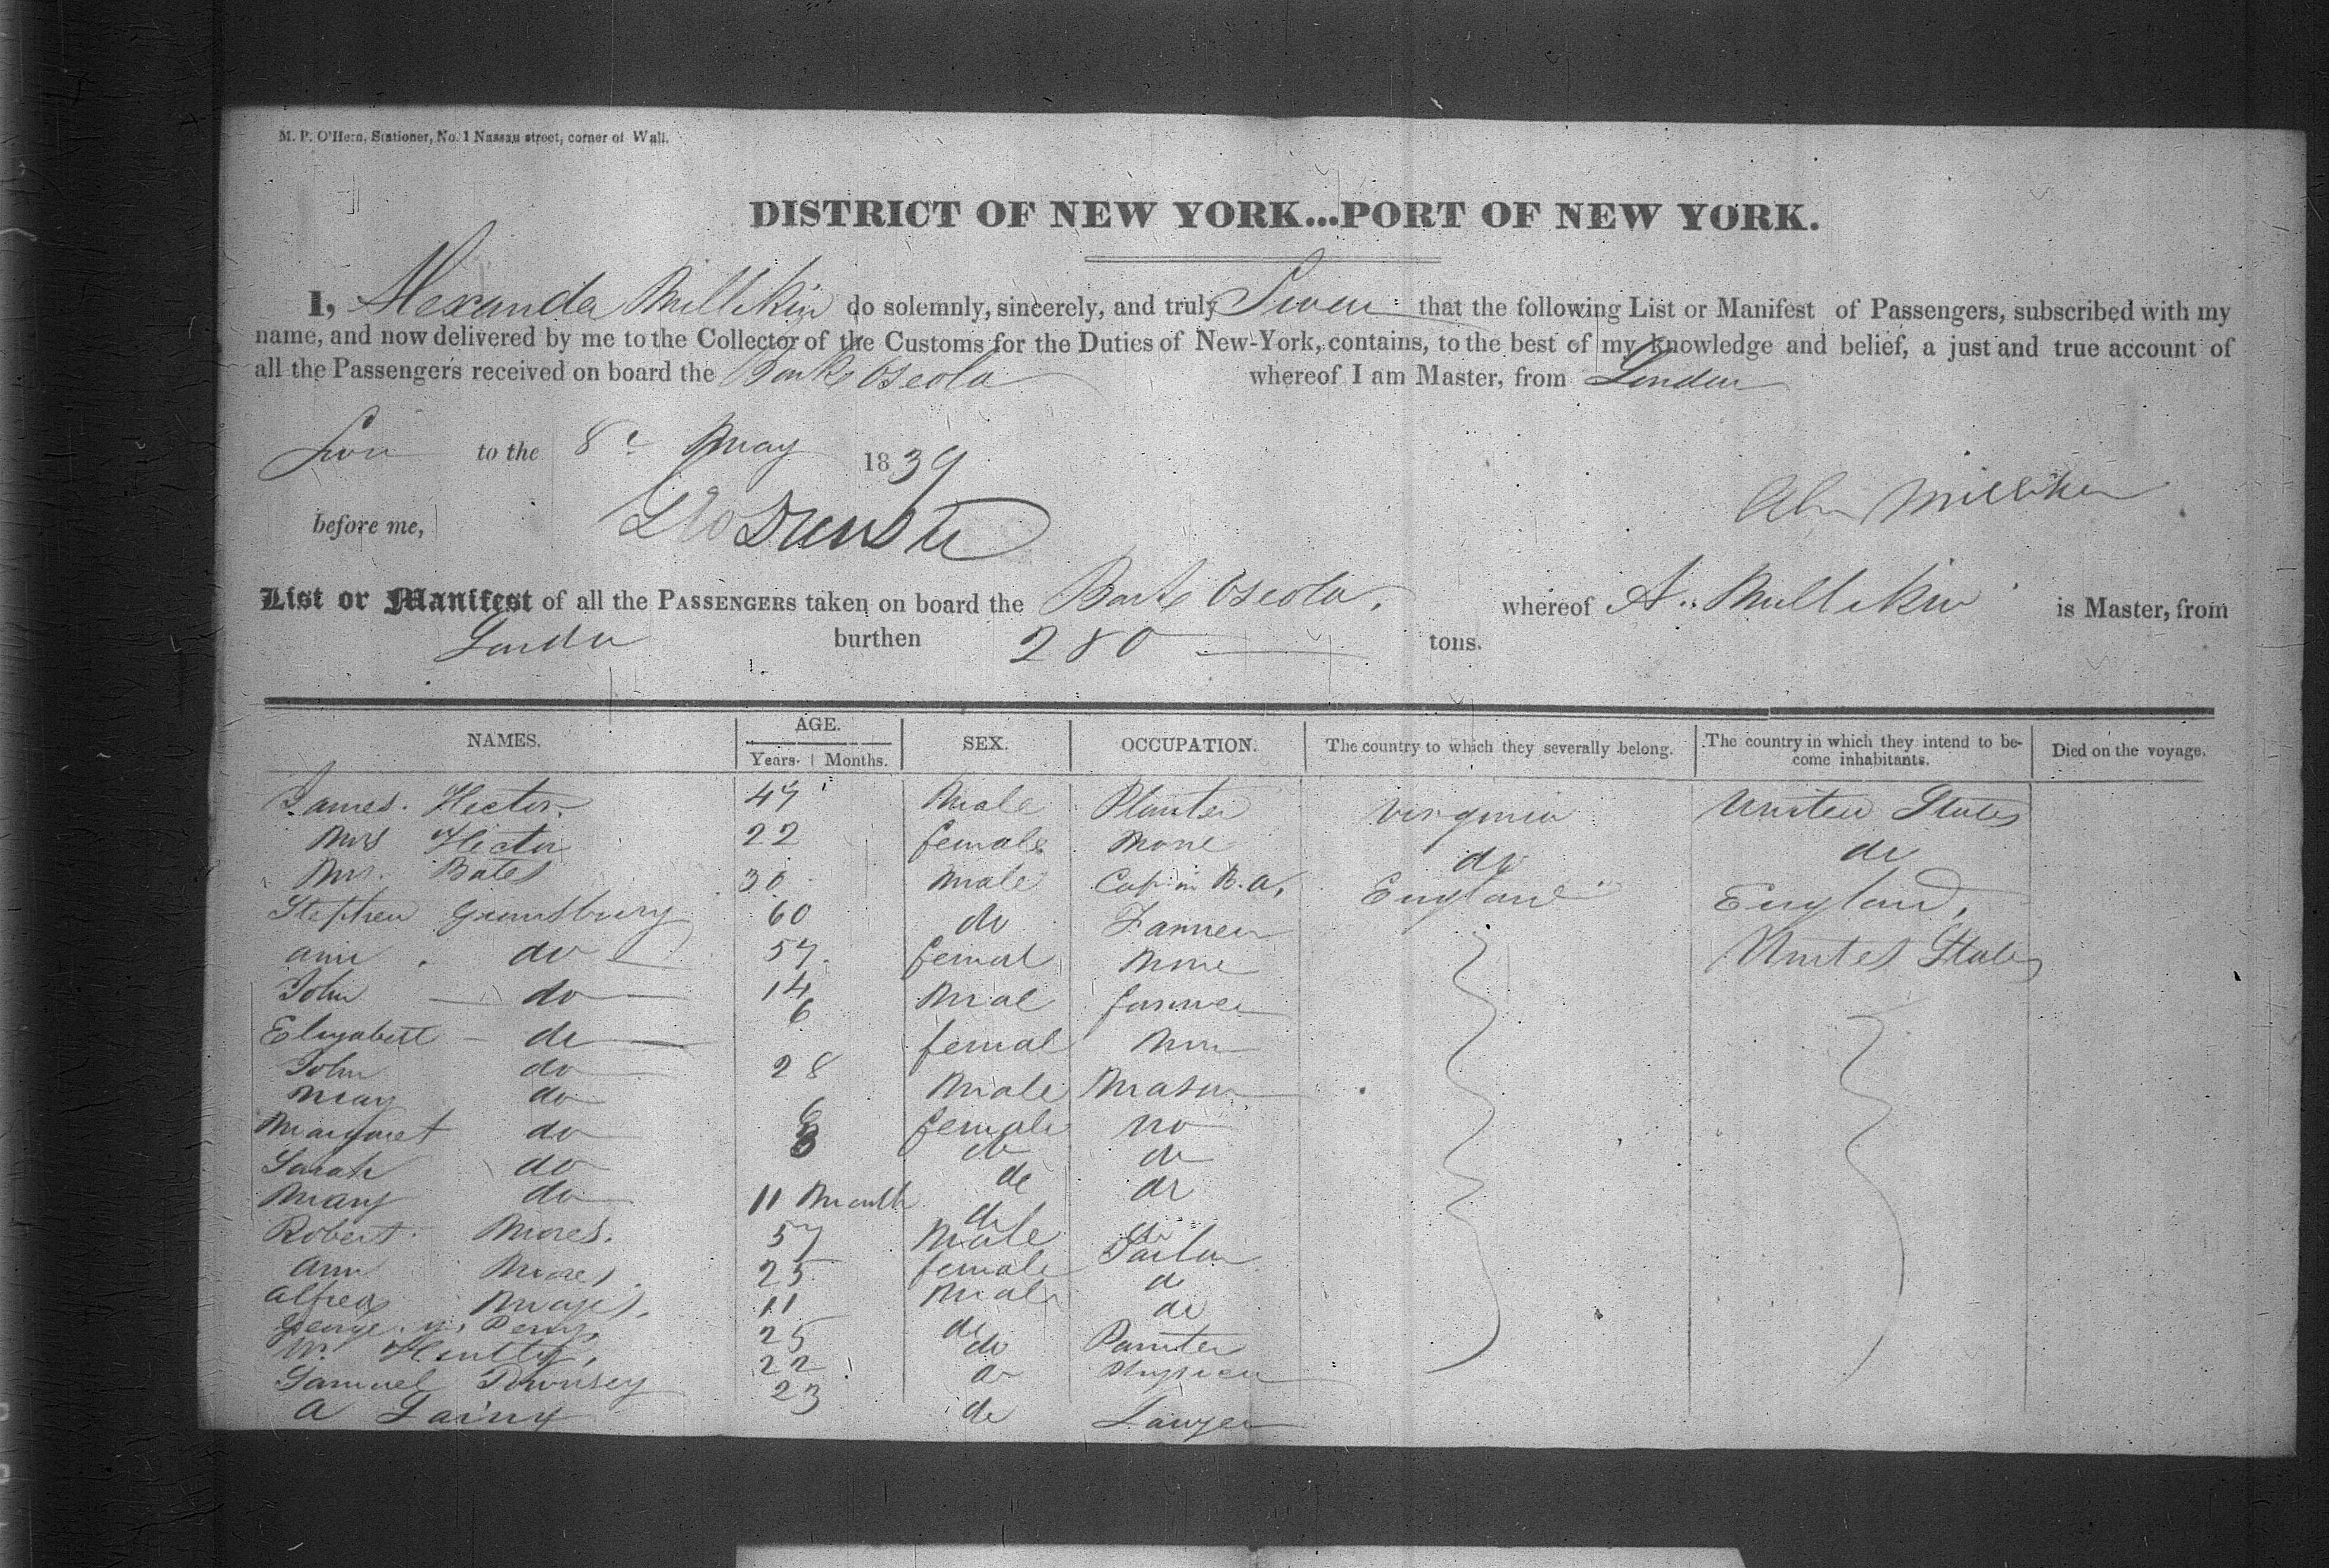 M. P. O'Hern, Stationer, No. 1 Nassau street, corner of Wall.
DISTRICT OF NEW YORK...PORT OF NEW YORK.
I, Alexanda Millikin do solemnly, sincerely, and truly Swear that the following List or Manifest of Passengers, subscribed with my
name, and now delivered by me to the Collector of the Customs for the Duties of New-York, contains, to the best of my knowledge and belief, a just and true account of
all the Passengers received on board the Bark Oseola whereof I am Master, from London
to the 8 May 1839
Millikin
before me,
List or Manifest of all the PASSENGERS taken on board the Bark Oseola, whereof A. Millikin is Master, from
London burthen 280 tons.
NAMES. AGE. Years. Months. SEX. OCCUPATION. The country to which they severally belong. The country in which they intend to become inhabitants. Died on the voyage.
James Hector 47 Male Planter Virginia United States
Mrs Hector 22 female None do do
Mr. Bates 30 Male Cap in B.A, England England,
Stephen Gunsbury 60 do Farmer United States
Ann do 57 femal None
John do 14 Mal farmer
Elizabeth do 6 femal Non
John do 28 Male Mason
Mary do female no
Margaret do 6 do do
Sarah do 8 de do
Mary do 11 Month do do
Robert Mores. 57 Male Tailor
Ann Mores 25 female do
Alfred 11 Male do
George Perry, 25 do Painter
W. Huntly, 22 do
Samuel Townsey 23 do
A Lainy do Lawyer